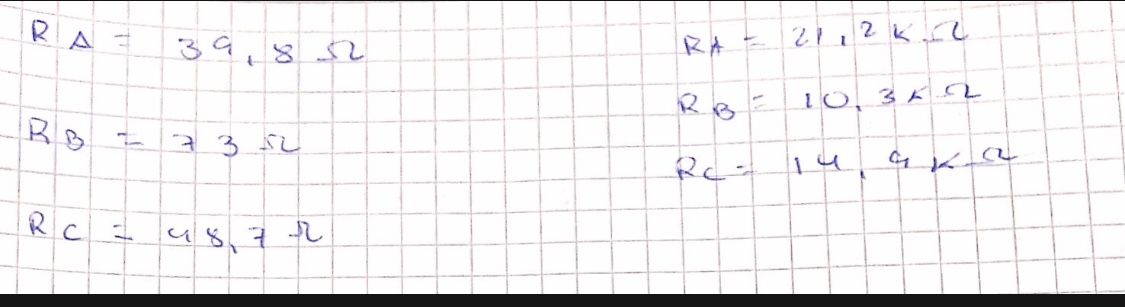 RA = 39,8 Ω
RB = 73 Ω
RC = 48,7 Ω
RA = 21,2 KΩ
RB = 10,3 KΩ
RC = 14,9 KΩ